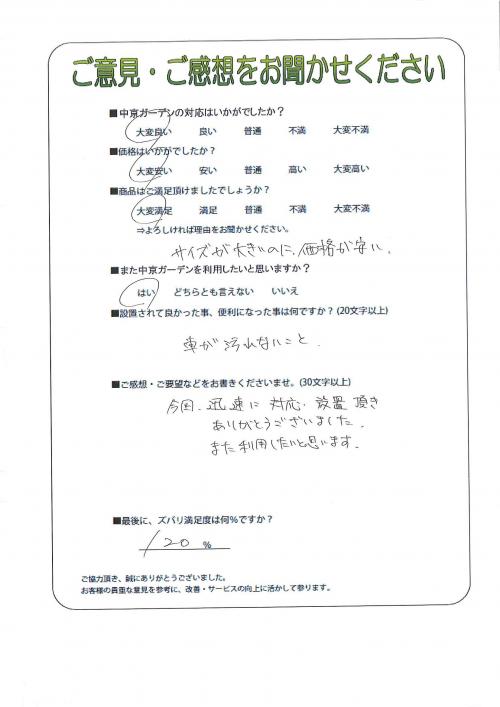 ご意見・ご感想をお聞かせください
■中京ガーデンの対応はいかがでしたか？
大変良い 良い 普通 不満 大変不満
■価格はいかがでしたか？
大変安い 安い 普通 高い 大変高い
■商品はご満足頂けましたでしょうか？
大変満足 満足 普通 不満 大変不満
⇒よろしければ理由をお聞かせください。
サイズが大きいのに、価格が安い。
■また中京ガーデンを利用したいと思いますか？
はい どちらとも言えない いいえ
■設置されて良かった事、便利になった事は何ですか？(20文字以上)
車が汚れないこと．
■ご感想・ご要望などをお書きくださいませ。(30文字以上)
今回、迅速に対応・設置頂き
ありがとうございました．
また利用したいと思います．
■最後に、ズバリ満足度は何％ですか？
120 %
ご協力頂き、誠にありがとうございました。
お客様の貴重な意見を参考に、改善・サービスの向上に活かして参ります。